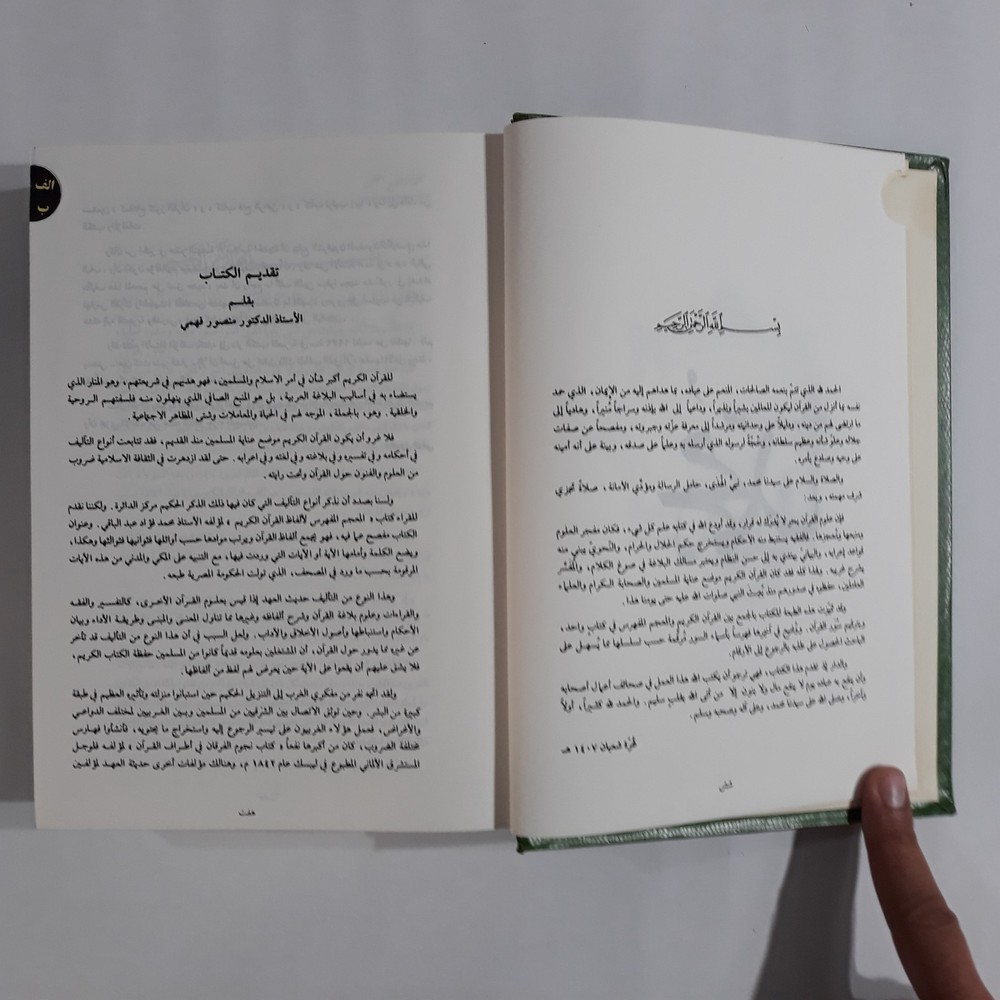 بسم الله الرحمن الرحيم
الحمد لله الذي تتمّ بنعمه الصالحات، المنعم على عباده، بما هداهم إليه من الإيمان، الذي حمد
نفسه بما أنزل من القرآن ليكون للعالمين بشيراً ونذيراً، وداعياً إلى الله بإذنه وسراجاً مُنيراً، وهادياً إلى
ما ارتضى لهم من دينه، ودليلاً على وحدانيته ومرشداً إلى معرفة عزّته وجبروته، ومفصحاً عن صفات
جلاله وعلوّ شأنه وعظيم سلطانه، وحُجّة لرسوله الذي أرسله به وعلماً على صدقه، وبينة على أنه أمينه
على وحيه وصادع بأمره.
والصلاة والسلام على سيدنا محمد، نبيّ الهدى، حامل الرسالة ومؤدّي الامانة، صلاةً تجزي
شرف مهمته، وبعد:
فإن علوم القرآن بحر لا يُدرك له قرار، وقد أودع الله في كتابه علم كل شيء، فكان مفجر العلوم
ومنبعها ومعدنها. فالفقيه يستنبط منه الأحكام ويستخرج حكم الحلال والحرام، والنّحويّ يبني منه
قواعد إعرابه، والبيانيّ يهتدي به إلى حسن النظام ويعتبر مسالك البلاغة في صوغ الكلام، والمُفسّر
يشرح غريبه. ولهذا كله فقد كان القرآن الكريم موضع عناية المسلمين والصحابة الكرام والعلماء
العاملين، حفظوه في صدورهم منذ رُتّل النبي صلوات الله عليه حتى يومنا هذا.
وقد تميّزت هذه الطبعة للكتاب بالجمع بين القرآن الكريم والمعجم المفهرس في كتاب واحد،
وبترقيم سُوَر القرآن. ووُضع في آخرها فهرساً بأسماء السور مُرقّمة حسب تسلسلها مما يُسهل على
الباحث الحصول على طلبه بالرجوع إلى الأرقام.
والدار إذ تقدم هذا الكتاب، فهي ترجو أن يكتب الله هذا العمل في صحائف أعمال أصحابه
وأن ينفع به عباده يوم لا ينفع مال ولا بنون إلا من أتى الله بقلب سليم. والحمد لله كثيراً، أولاً
وآخراً، وصلى الله على سيدنا محمد، وعلى آله وصحبه وسلم.
غرّة شعبان ١٤٠٧ هـ
شش
الف
ب
تقديم الكتاب
بقلم
الأستاذ الدكتور منصور فهمي
للقرآن الكريم أكبر شأن في أمر الاسلام والمسلمين، فهو هديهم في شريعتهم، وهو المنار الذي
يستضاء به في أساليب البلاغة العربية، بل هو المنبع الصافي الذي ينهلون منه فلسفتهم الروحية
والخلقية. وهو، بالجملة، الموجه لهم في الحياة والمعاملات وشتى المظاهر الاجتماعية.
فلا غرو أن يكون القرآن الكريم موضع عناية المسلمين منذ القديم، فقد تتابعت أنواع التأليف
في أحكامه وفي تفسيره، وفي بلاغته وفي لغته وفي اعرابه. حتى لقد ازدهرت في الثقافة الاسلامية ضروب
من العلوم والفنون حول القرآن وتحت رايته.
ولسنا بصدد أن نذكر أنواع التآليف التي كان فيها ذلك الذكر الحكيم مركز الدائرة. ولكننا نقدم
للقراء كتاب « المعجم المفهرس لألفاظ القرآن الكريم » لمؤلفه الأستاذ محمد فؤاد عبد الباقي. وعنوان
الكتاب مفصح عما فيه، فهو يجمع ألفاظ القرآن ويرتب موادها حسب أوائلها فثوانيها فثوالثها وهكذا،
ويضع الكلمة وأمامها الآية أو الآيات التي وردت فيها، مع التنبيه على المكي والمدني من هذه الآيات
المرقومة بحسب ما ورد في المصحف، الذي تولت الحكومة المصرية طبعه.
وهذا النوع من التأليف حديث العهد إذا قيس بعلوم القرآن الأخرى، كالتفسير والفقه
والقراءات وعلوم بلاغة القرآن وشرح ألفاظه وغيرها مما تناول المعنى والمبنى وطريقة الأداء وبيان
الأحكام واستنباطها وأصول الأخلاق والآداب. ولعل السبب في أن هذا النوع من التأليف قد تأخر
عن غيره مما يدور حول القرآن، أن المشتغلين بعلومه قديماً كانوا من حفظة الكتاب الكريم،
فلا يشق عليهم أن يقعوا على الآية حين يعرض لهم لفظ من ألفاظها.
ولقد اتجه نفر من مفكري الغرب إلى التنزيل الحكيم حين استبانوا منزلته وتأثيره العظيم في طبقة
كبيرة من البشر. وحين توثق الاتصال بين الشرقيين من المسلمين وبين الغربيين لمختلف الدواعي
والأغراض، فعمل هؤلاء الغربيون على تيسير الرجوع إليه واستخراج ما يحتويه، فأنشأوا فهارس
مختلفة الضروب، كان من أكبرها نفعاً « كتاب نجوم الفرقان في أطراف القرآن » لمؤلفه فلوجل
المستشرق الألماني المطبوع في ليبسك عام ١٨٤٢ م، وهنالك مؤلفات أخرى حديثة العهد لمؤلفين
هفت